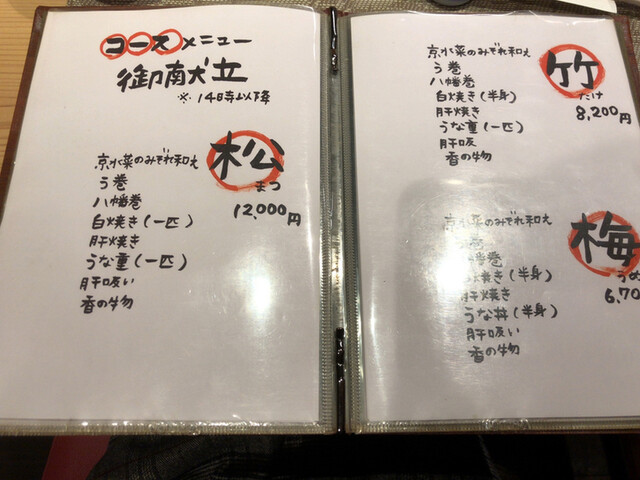 コースメニュー
御献立
※14時以降
松
まつ
12,000円
京水菜のみぞれ和え
う巻
八幡巻
白焼き(一匹)
肝焼き
うな重(一匹)
肝吸い
香の物
竹
たけ
8,200円
京水菜のみぞれ和え
う巻
八幡巻
白焼き(半身)
肝焼き
うな重(一匹)
肝吸
香の物
梅
うめ
6,70
京水菜のみぞれ和え
巻
幡巻
焼き(半身)
肝焼き
うな丼(半身)
肝吸い
香の物